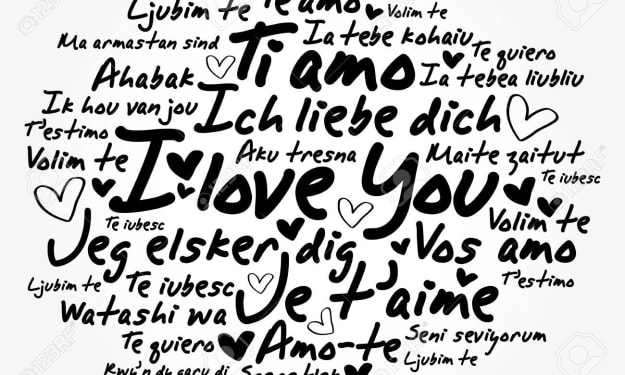 Ljubim te
Te amo
Volim te
Ma armastan sind
Ia tebe kohaiu
Te quiero
Ahabak
Ti amo
Ia tebea liubliu
Ik hou van jou
Ich liebe dich
T'estimo
Volim te
Aku tresna
Maite zaitut
I love You
Te iubesc
Te iubesc
Volim te
Jeg elsker dig
Vos amo
Ljubim te
Te iubesc
Je t'aime
T'estimo
Watashi wa
Te quiero
Amo-te
Seni seviyorum
Ljubim te
Rwy'n dy garu di
123RF